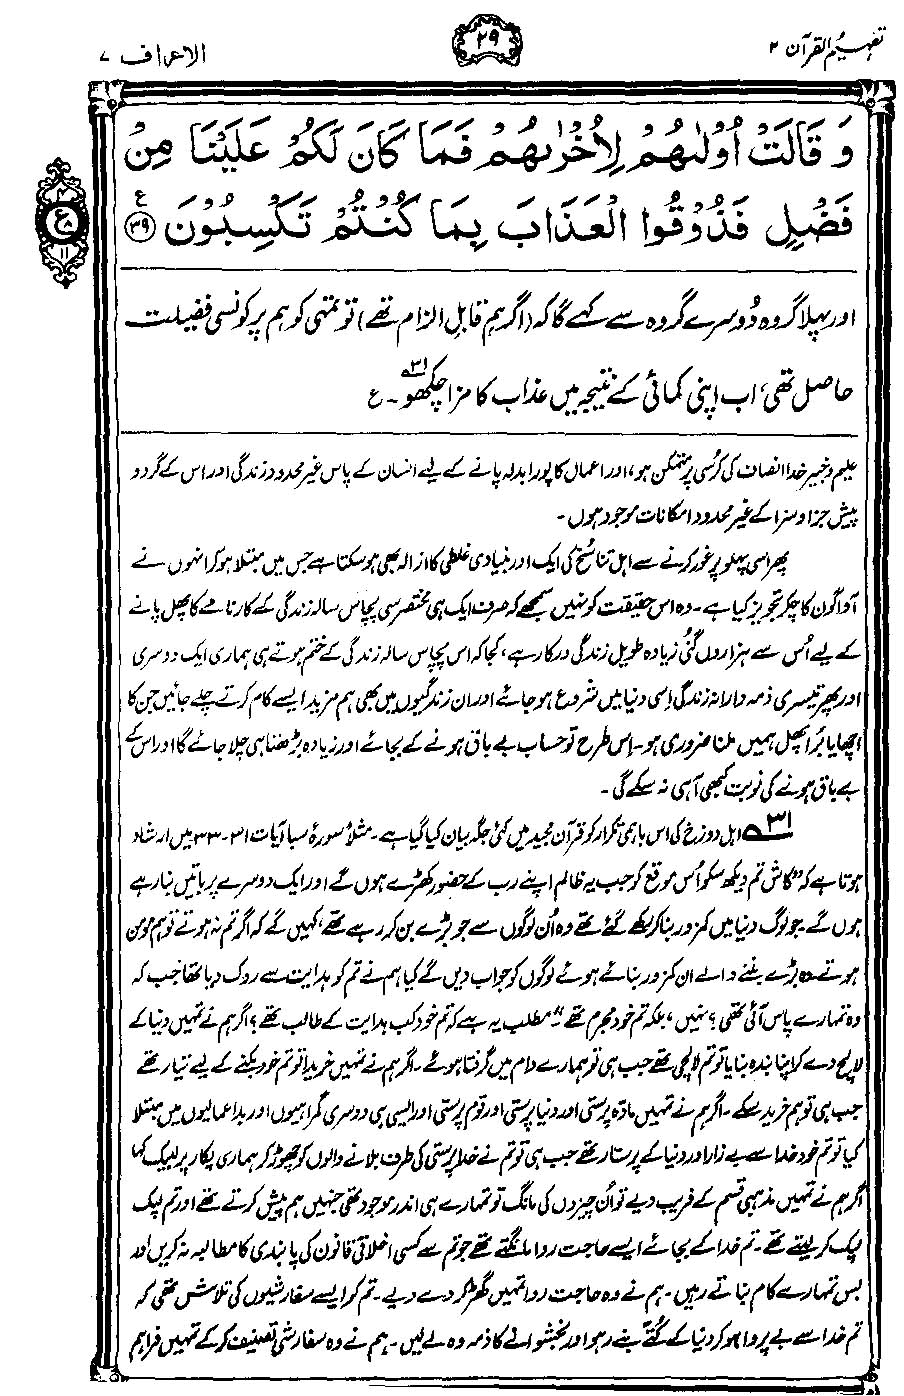 تفہیم القرآن ۲
۲۹
الاعراف ۷
وَقَالَتْ اُوْلٰىهُمْ لِاُخْرٰىهُمْ فَمَا كَانَ لَكُمْ عَلَيْنَا مِنْ
فَضْلٍ فَذُوْقُوا الْعَذَابَ بِمَا كُنْتُمْ تَكْسِبُوْنَ ﴿۳۹﴾ ع
۴
ع
۸
۱۱
اور پہلا گروہ دُوسرے گروہ سے کہے گا کہ (اگر ہم قابلِ الزام تھے) تو تمہی کو ہم پر کونسی فضیلت
حاصل تھی، اب اپنی کمائی کے نتیجہ میں عذاب کا مزا چکھو۳۱۔ ع
علیم و خبیر خدا انصاف کی کُرسی پر متمکن ہو، اور اعمال کا پورا بدلہ پانے کے لیے انسان کے پاس غیر محدود زندگی اور اس کے گرد و
پیش جزا و سزا کے غیر محدود امکانات موجود ہوں۔
پھر اسی پہلو پر غور کرنے سے اہل تناسُخ کی ایک اور بنیادی غلطی کا ازالہ بھی ہو سکتا ہے جس میں مبتلا ہو کر انہوں نے
آواگون کا چکر تجویز کیا ہے۔ وہ اس حقیقت کو نہیں سمجھے کہ صرف ایک ہی مختصر سی پچاس سالہ زندگی کے کارنامے کا پھل پانے
کے لیے اُس سے ہزاروں گُنی زیادہ طویل زندگی درکار ہے، کجا کہ اس پچاس سالہ زندگی کے ختم ہوتے ہی ہماری ایک دوسری
اور پھر تیسری ذمہ دارانہ زندگی اِسی دنیا میں شروع ہو جائے اور ان زندگیوں میں بھی ہم مزید ایسے کام کرتے چلے جائیں جن کا
اچھا یا بُرا پھل ہمیں ملنا ضروری ہو۔ اِس طرح تو حساب بے باق ہونے کے بجائے اور زیادہ بڑھتا ہی چلا جائے گا اور اس کے
بے باق ہونے کی نوبت کبھی آ ہی نہ سکے گی۔
۳۱ اہل دوزخ کی اس باہمی تکرار کو قرآن مجید میں کئی جگہ بیان کیا گیا ہے۔ مثلاً سورۂ سبا آیات ۳۱-۳۳ میں ارشاد
ہوتا ہے کہ "کاش تم دیکھ سکو اُس موقع کو جب یہ ظالم اپنے رب کے حضور کھڑے ہوں گے اور ایک دوسرے پر باتیں بنا رہے
ہوں گے۔ جو لوگ دنیا میں کمزور بنا کر رکھے گئے تھے وہ اُن لوگوں سے جو بڑے بن کر رہے تھے، کہیں گے کہ اگر تم نہ ہوتے تو ہم مومن
ہوتے۔ وہ بڑے بننے والے ان کمزور بنائے ہوئے لوگوں کو جواب دیں گے کیا ہم نے تم کو ہدایت سے روک دیا تھا جب کہ
وہ تمہارے پاس آئی تھی؟ نہیں، بلکہ تم خود مجرم تھے" مطلب یہ ہے کہ تم خود کب ہدایت کے طالب تھے؟ اگر ہم نے تمہیں دنیا کے
لالچ دے کر اپنا بندہ بنایا تو تم لالچی تھے جب ہی تو ہمارے دام میں گرفتار ہوئے۔ اگر ہم نے تمہیں خریدا تو تم خود بکنے کے لیے تیار تھے
جب ہی تو ہم خرید سکے۔ اگر ہم نے تمہیں مادّہ پرستی اور دنیا پرستی اور قوم پرستی اور ایسی ہی دوسری گمراہیوں اور بداعمالیوں میں مبتلا
کیا تو تم خود خدا سے بے زار اور دنیا کے پرستار تھے جب ہی تو تم نے خدا پرستی کی طرف بلانے والوں کو چھوڑ کر ہماری پکار پر لبیک کہا
اگر ہم نے تمہیں مذہبی قسم کے فریب دیے تو اُن چیزوں کی مانگ تو تمہارے ہی اندر موجود تھی جنہیں ہم پیش کرتے تھے اور تم لپک
لپک کر لیتے تھے۔ تم خدا کے بجائے ایسے حاجت روا مانگتے تھے جو تم سے کسی اخلاقی قانون کی پابندی کا مطالبہ نہ کریں اور
بس تمہارے کام بناتے رہیں۔ ہم نے وہ حاجت روا تمہیں گھڑ کر دے دیے۔ تم کو ایسے سفارشیوں کی تلاش تھی کہ
تم خدا سے بے پروا ہو کر دنیا کے کُتّے بنے رہو اور بخشوانے کا ذمہ وہ لے لیں۔ ہم نے وہ سفارشی تصنیف کر کے تمہیں فراہم